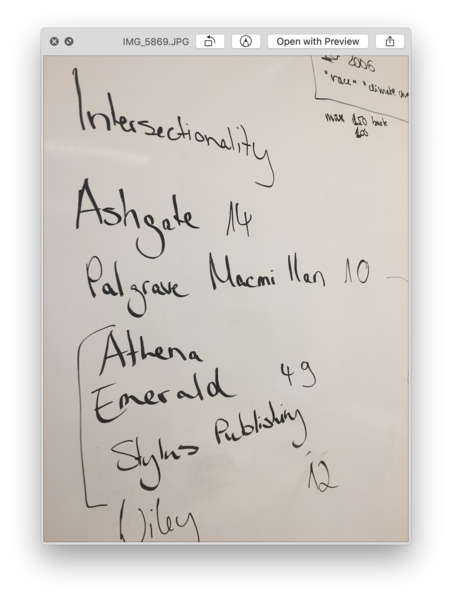 IMG_5869.JPG
Open with Preview
2006
"race" "climate
max 150 book
100
Intersectionality
Ashgate 14
Palgrave Macmillan 10
Athena
Emerald 49
Stylus Publishing
12
Wiley